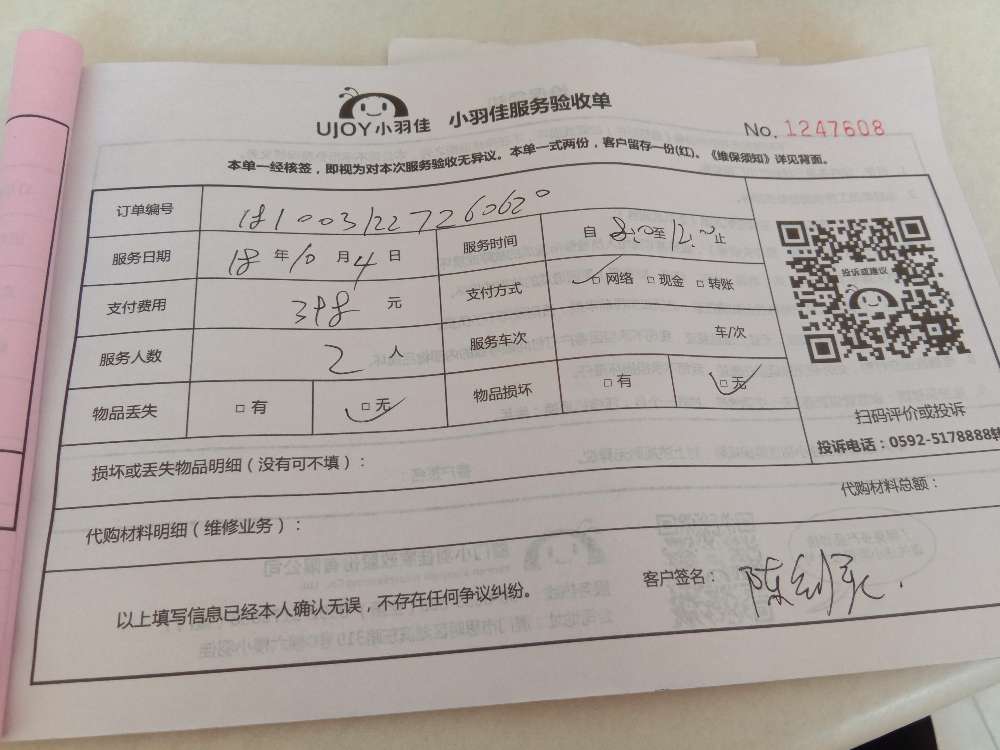 UJOY小羽佳 小羽佳服务验收单
No. 1247608
本单一经核签，即视为对本次服务验收无异议。本单一式两份，客户留存一份(红)。《维保须知》详见背面。
订单编号 1810031227260620
服务日期 18 年 10 月 4 日 服务时间 自 8:00 至 12:00 止
支付费用 398 元 支付方式 □ 网络 □ 现金 □ 转账
服务人数 2 人 服务车次 车/次
物品丢失 □ 有 □ 无 物品损坏 □ 有 □ 无
投诉或建议
扫码评价或投诉
投诉电话：0592-5178888转
损坏或丢失物品明细（没有可不填）：
代购材料明细（维修业务）： 代购材料总额：
以上填写信息已经本人确认无误，不存在任何争议纠纷。 客户签名：